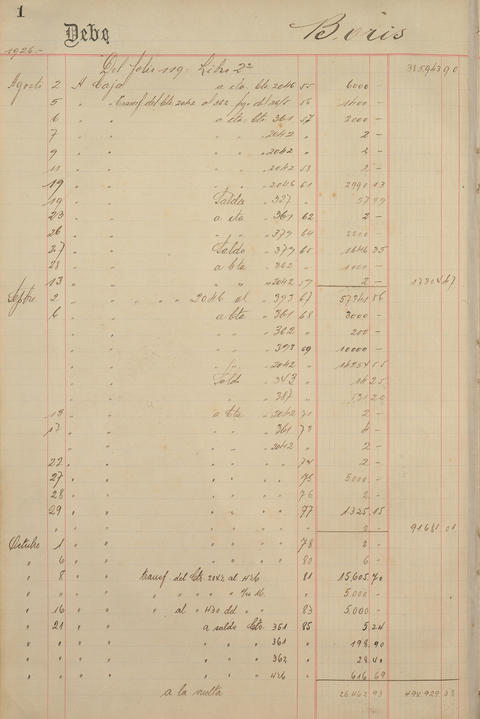 1
Debe Boris
1926.-
Del folio 119 - Libro 2º
Agosto 2 A Caja a cta. Cte. 2046 55 6000 -
5 " " Transf. del Cte. 2042 al 362 56
6 " " a cta. Cte. 361 57 2000 -
7 " " " 2042 " 2 -
9 " " " 2042 " 2 -
11 " " " 2042 2 -
19 " " " 2046 61 2990 13
19 " " Saldo " 327 " 57
23 " " a cta " 361 62 2 -
26 " " " " 379 64
27 " " Saldo " 379 1646 35
28 " " a Cta " 362 " 1000 -
13 " " " 2042 2 -
Septbre 2 " " " 2046 al " 393 67 57341 86
6 " " a Cta " 361 68 3000 -
" " " " " 362 " 200 -
" " " " " 393 69 10000 -
" " " " " 2042 "
" " Saldo " 343 " 14 25
" " " " 387 " 20
13 " " a Cta " 2042 71 2 -
17 " " " " 361 73 4 -
" " " " " 2042 " 2 -
22 " " " " " 74 2 -
27 " " " " " 75 5000 -
28 " " " " " 76 2 -
29 " " " " " 77 1325 15
" " " " " " " 2 - 91681 01
Octubre 1 " " " " " 78 2 -
" 6 " " " " " 80 6 -
" 8 " " Transf. del Cte. 2042 al 426 81 15,605 70
" " " " " " " " " 5,000 -
" 16 " " " al " 430 del " 83 5,000 -
" 21 " " a saldo Cte. 361 85 5 24
" " " " " " 361 " 198 90
" " " " " " 362 " 28 40
" " " " " " 426 " 616 69
a la vuelta 26462 93 498,929 03